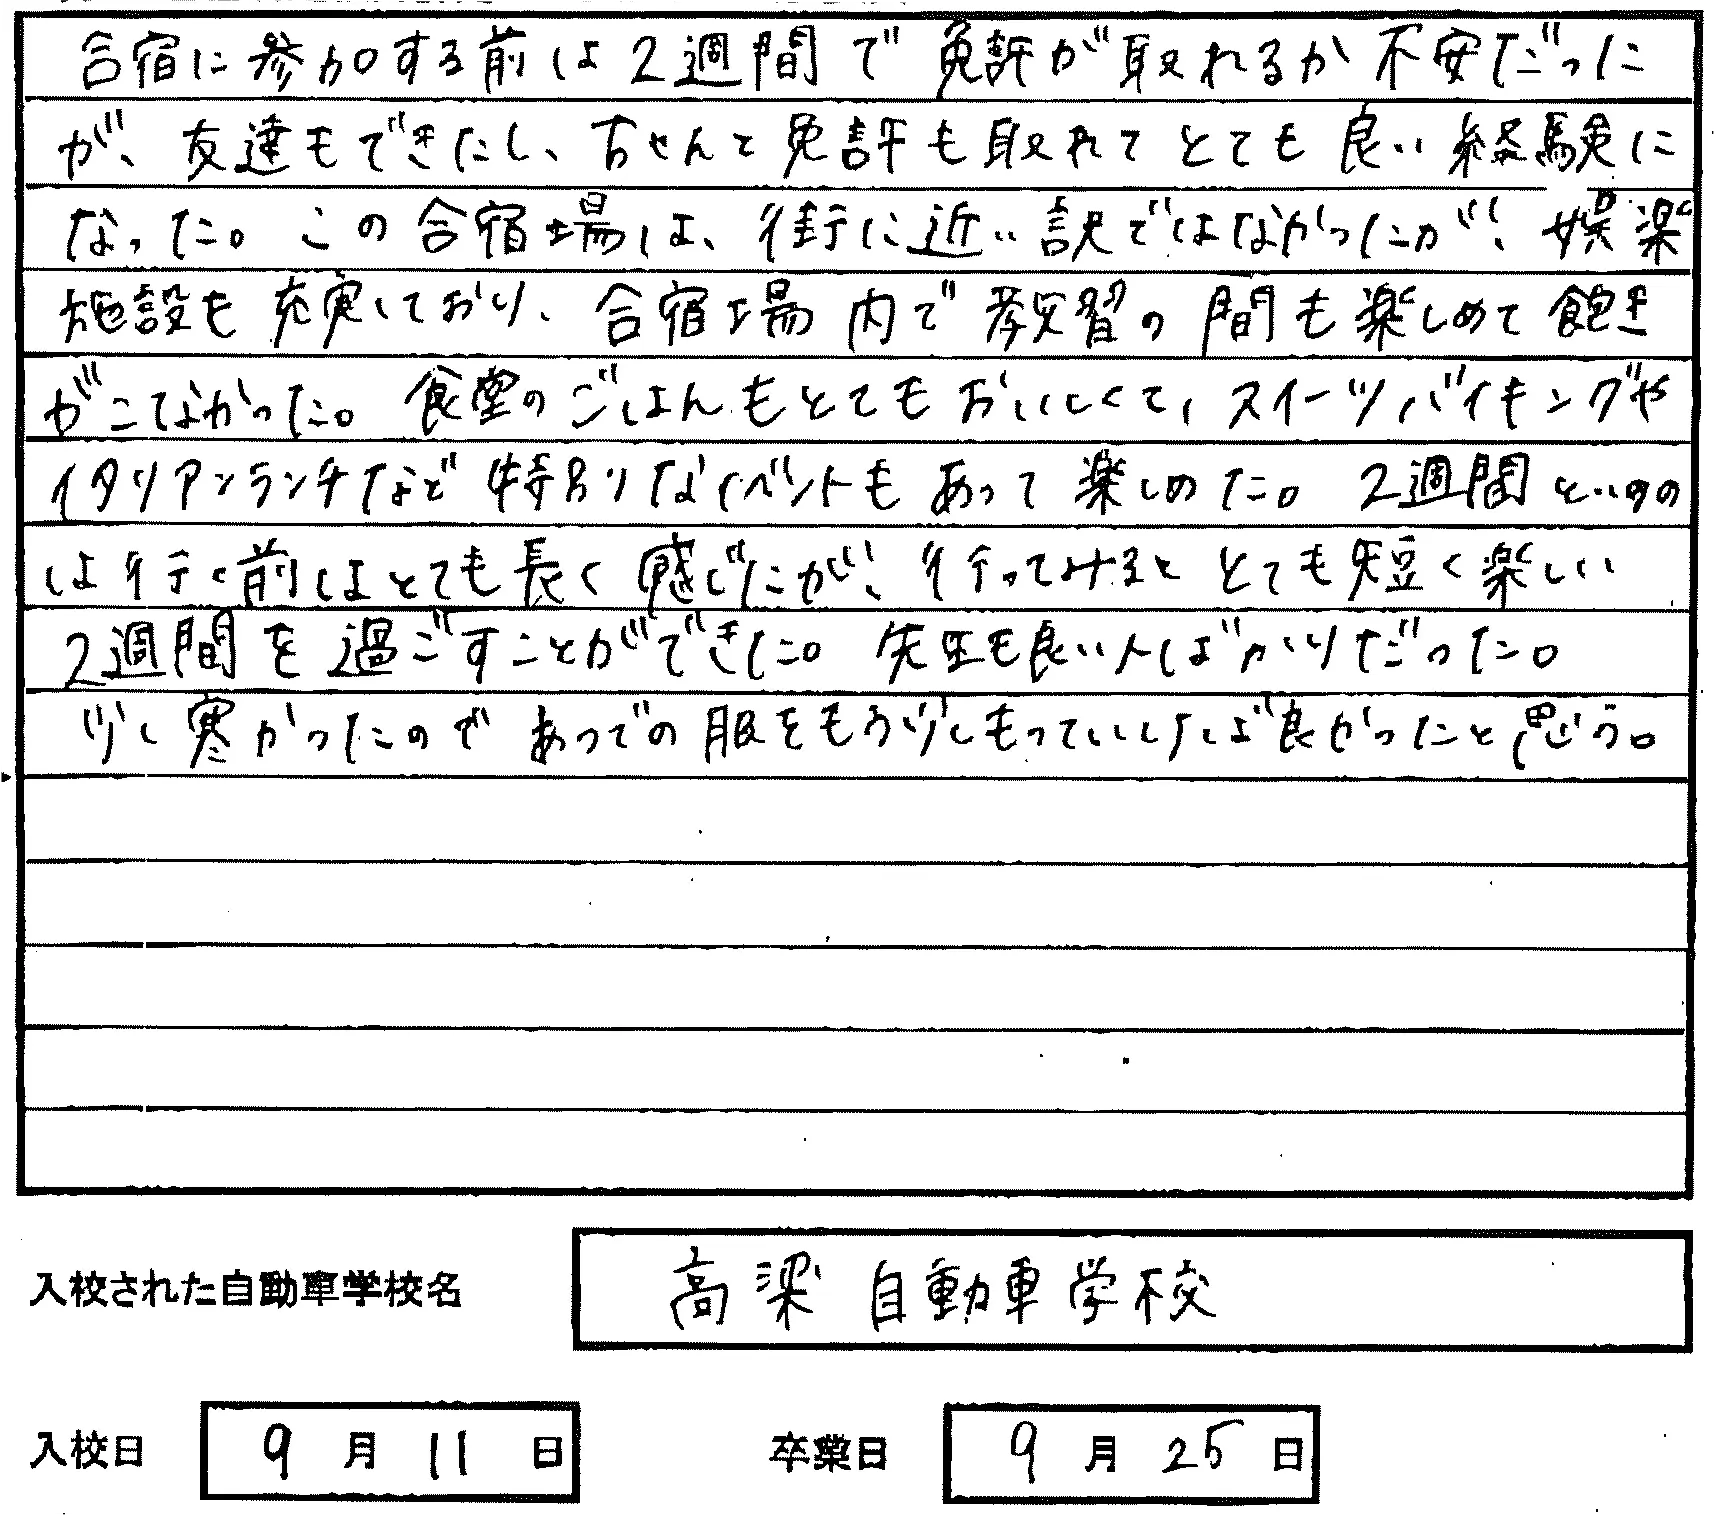 合宿に参加する前は2週間で免許が取れるか不安だった
が、友達もできたし、ちゃんと免許も取れてとても良い経験に
なった。この合宿場は、街に近い訳ではなかったが、娯楽
施設も充実しており、合宿場内で教習の間も楽しめて飽き
がこなかった。食堂のごはんもとてもおいしくて、スイーツバイキングや
イタリアンランチなど特別なイベントもあって楽しめた。2週間というの
は行く前はとても長く感じたが、行ってみるととても短く楽しい
2週間を過ごすことができた。先生も良い人ばかりだった。
少し寒かったのであつでの服をもう少しもっていければ良かったと思う。
入校された自動車学校名 高梁自動車学校
入校日 9月11日 卒業日 9月25日